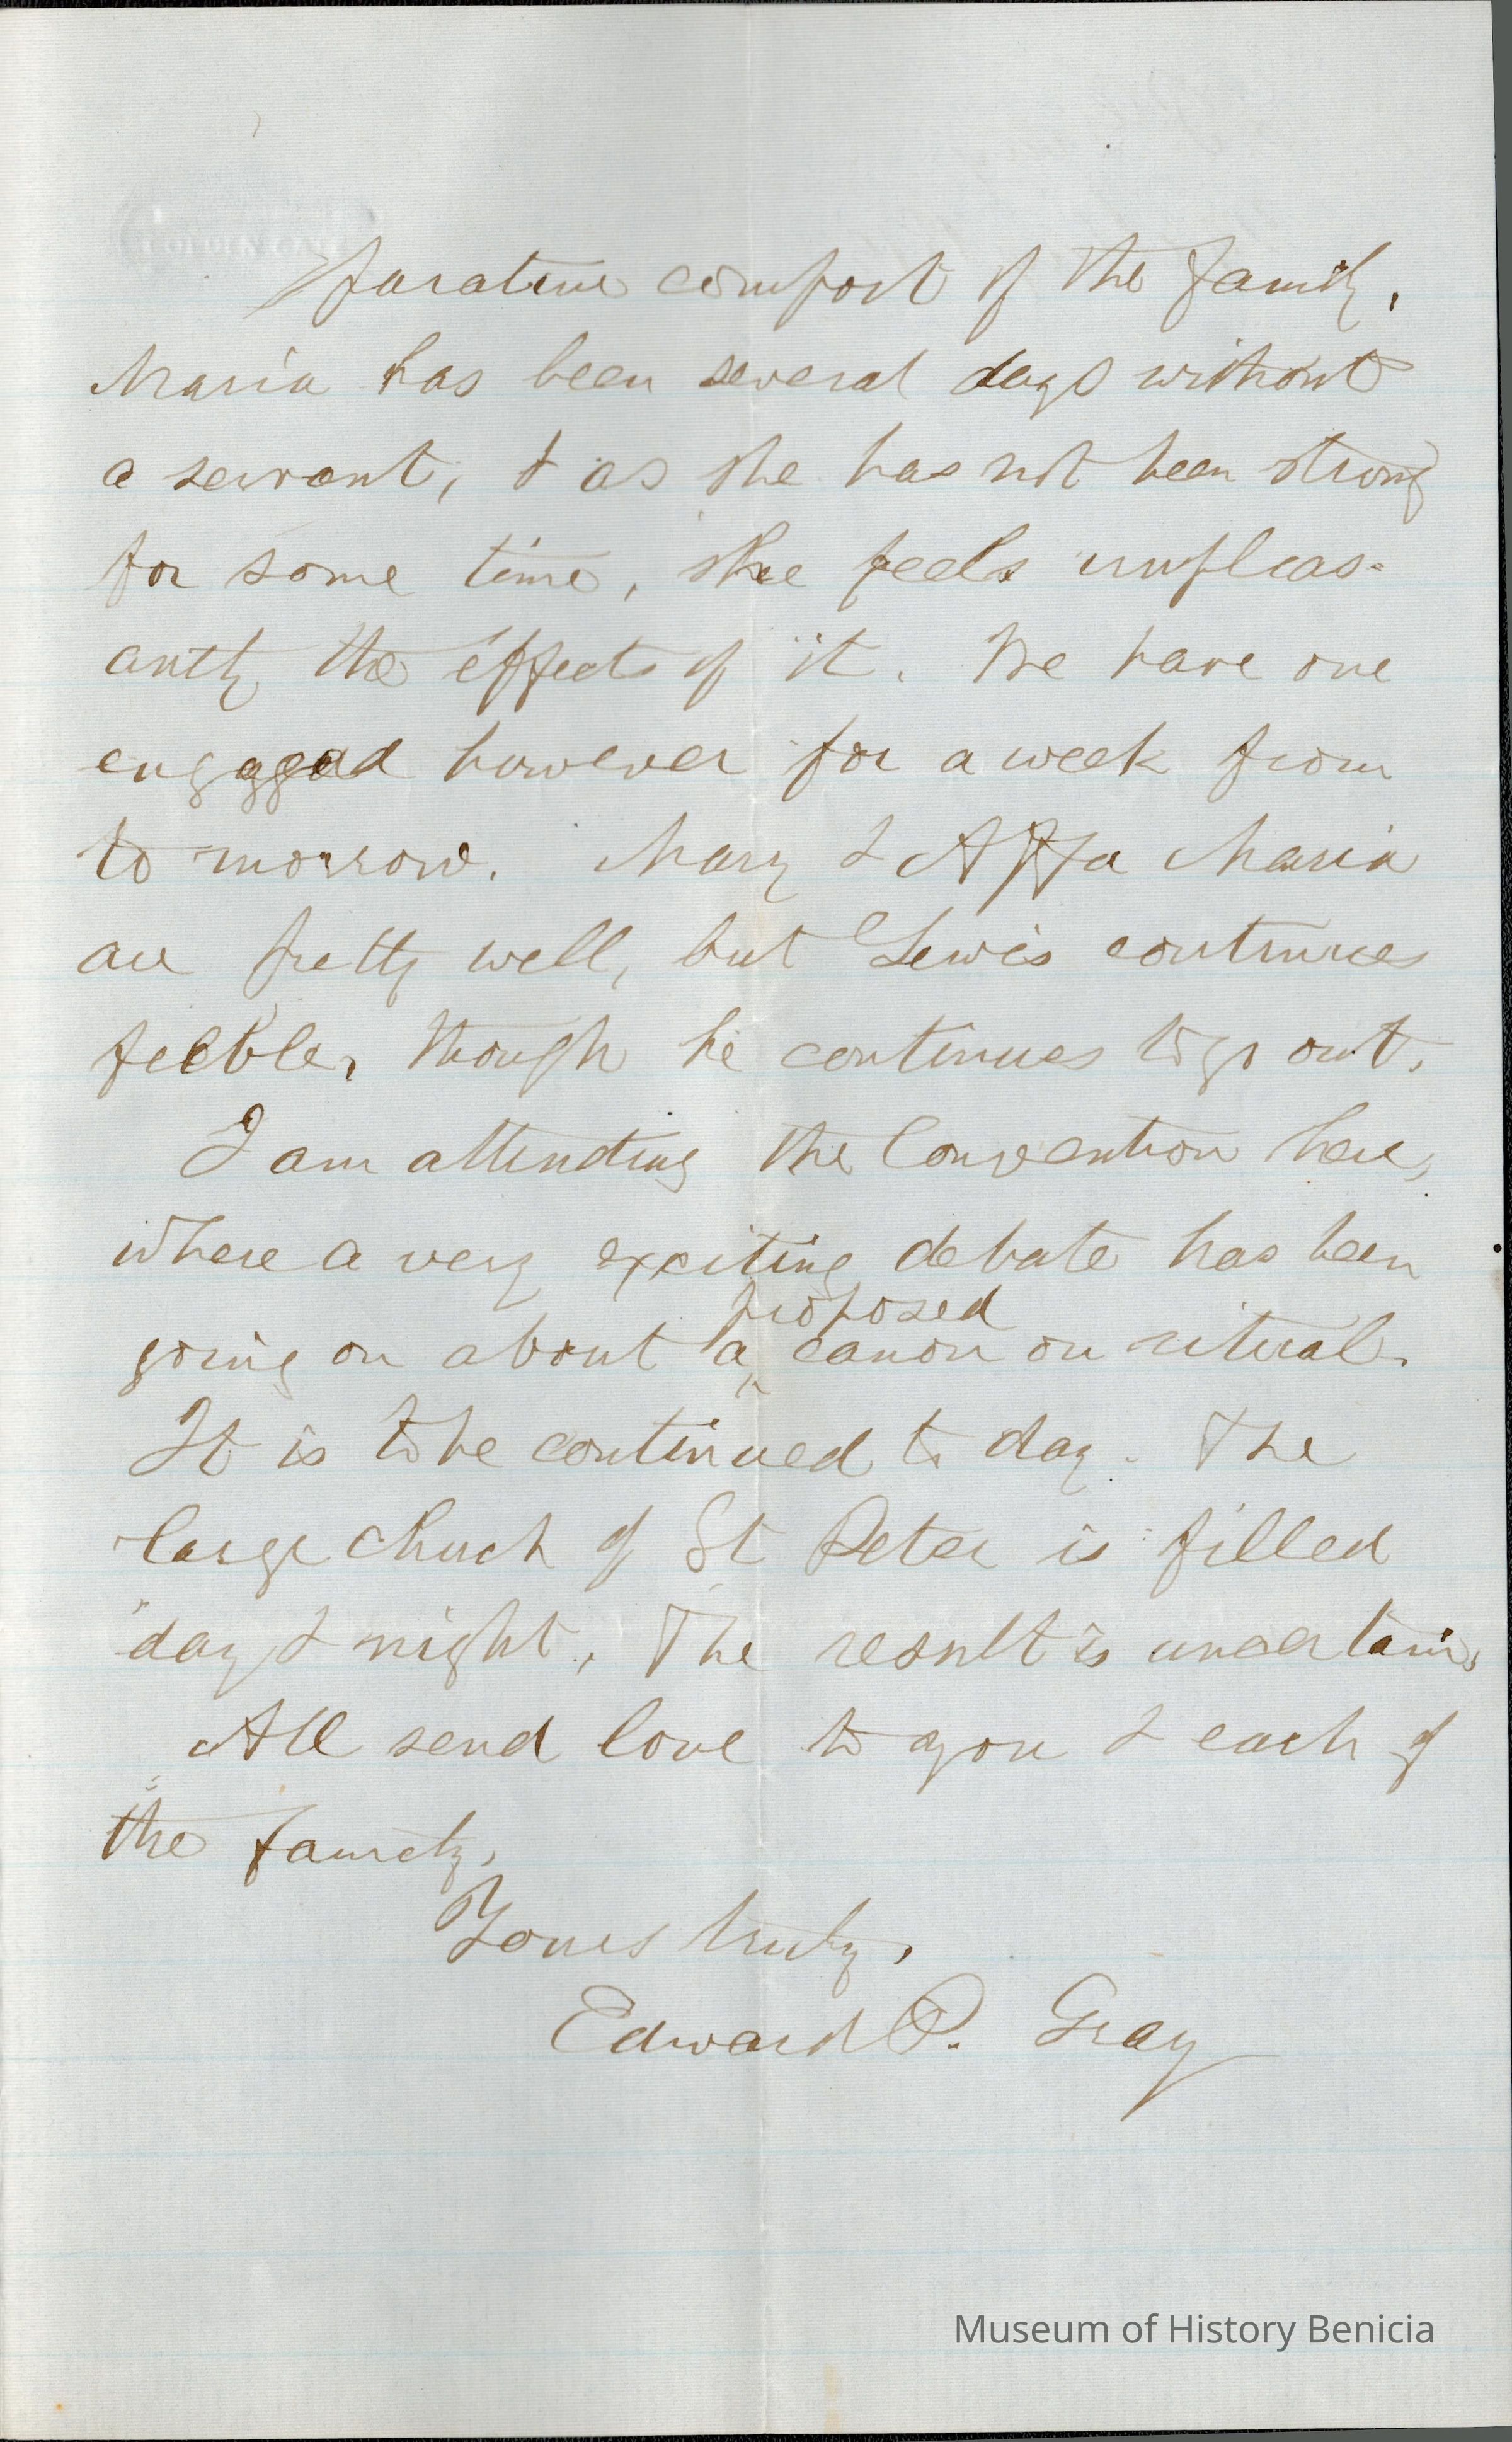 parative comfort of the family.
Maria has been several days without
a servant, & as she has not been strong
for some time, she feels unpleas-
antly the effects of it. We have one
engaged however for a week from
to morrow. Mary & Affa Maria
are pretty well, but Lewis continues
feeble, though he continues to go out.
I am attending the Convention here,
where a very exciting debate has been
proposed
going on about a canon on ritual.
It is to be continued to day. The
large church of St Peter is filled
day & night. The result is uncertain.
All send love to you & each of
the family.
Yours truly,
Edward P. Gray
Museum of History Benicia